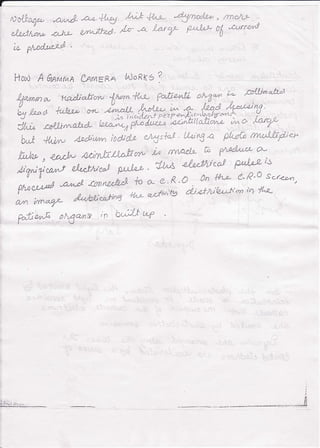 voltages and as they hit the dynodes, more
electrons are emitted. So a large pulse of current
is produced.
HOW A GAMMA CAMERA WORKS?
Gamma radiation from the patients organ is collimated
by lead tubes or small holes in a lead housing.
is incident perpendicular
This collimated beam, produces scintillations in a large
but thin sodium iodide crystal. Using a photo multiplier
tube, each scintillation is made to produce a
significant electrical pulse. This electrical pulse is
processed and connected to a C.R.O. On the C.R.O screen,
an image dublicating the activity distribution in the
patients organs is built up.